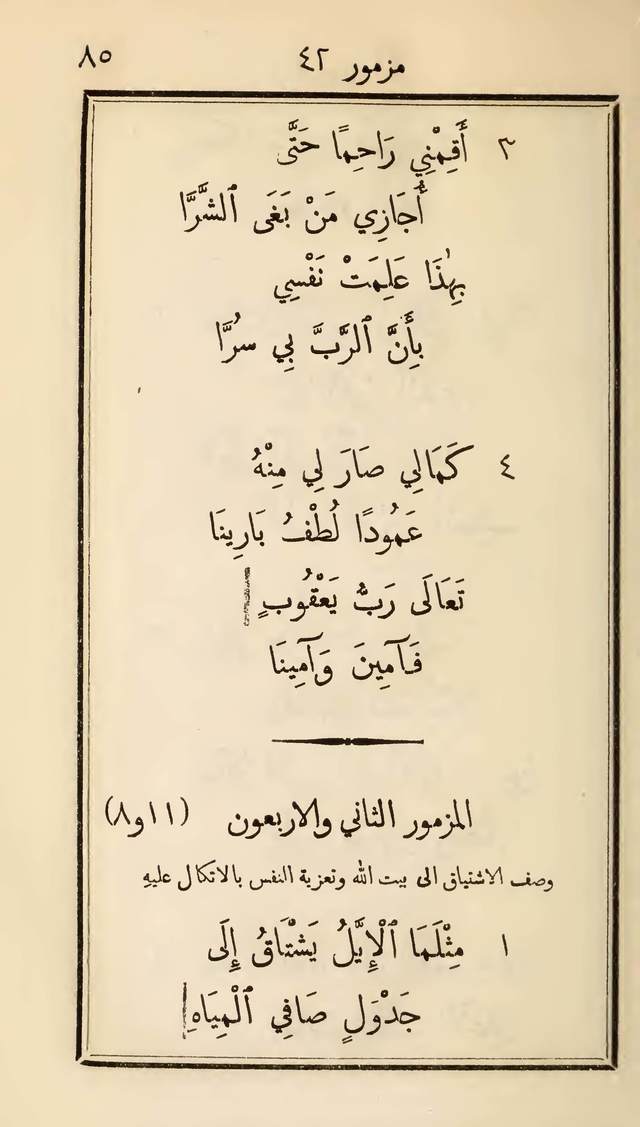 مزمور ٤٢ ٨٥
٣ أَقِمْنِي رَاحِمًا حَتَّى
أُجَازِي مَنْ بَغَى ٱلشَّرَّا
بِهٰذَا عَلِمَتْ نَفْسِي
بِأَنَّ ٱلرَّبَّ بِي سُرَّا
٤ كَمَالِي صَارَ لِي مِنْهُ
عَمُودًا لُطْفُ بَارِينَا
تَعَالَى رَبُّ يَعْقُوبٍ
فَآمِينَ وَآمِينَا
المزمور الثاني والاربعون (١١ و٨)
وصف الاشتياق الى بيت الله وتعزية النفس بالاتكال عليهِ
١ مِثْلَمَا ٱلْإِيَّلُ يَشْتَاقُ إِلَى
جَدْوَلٍ صَافِي ٱلْمِيَاهِ